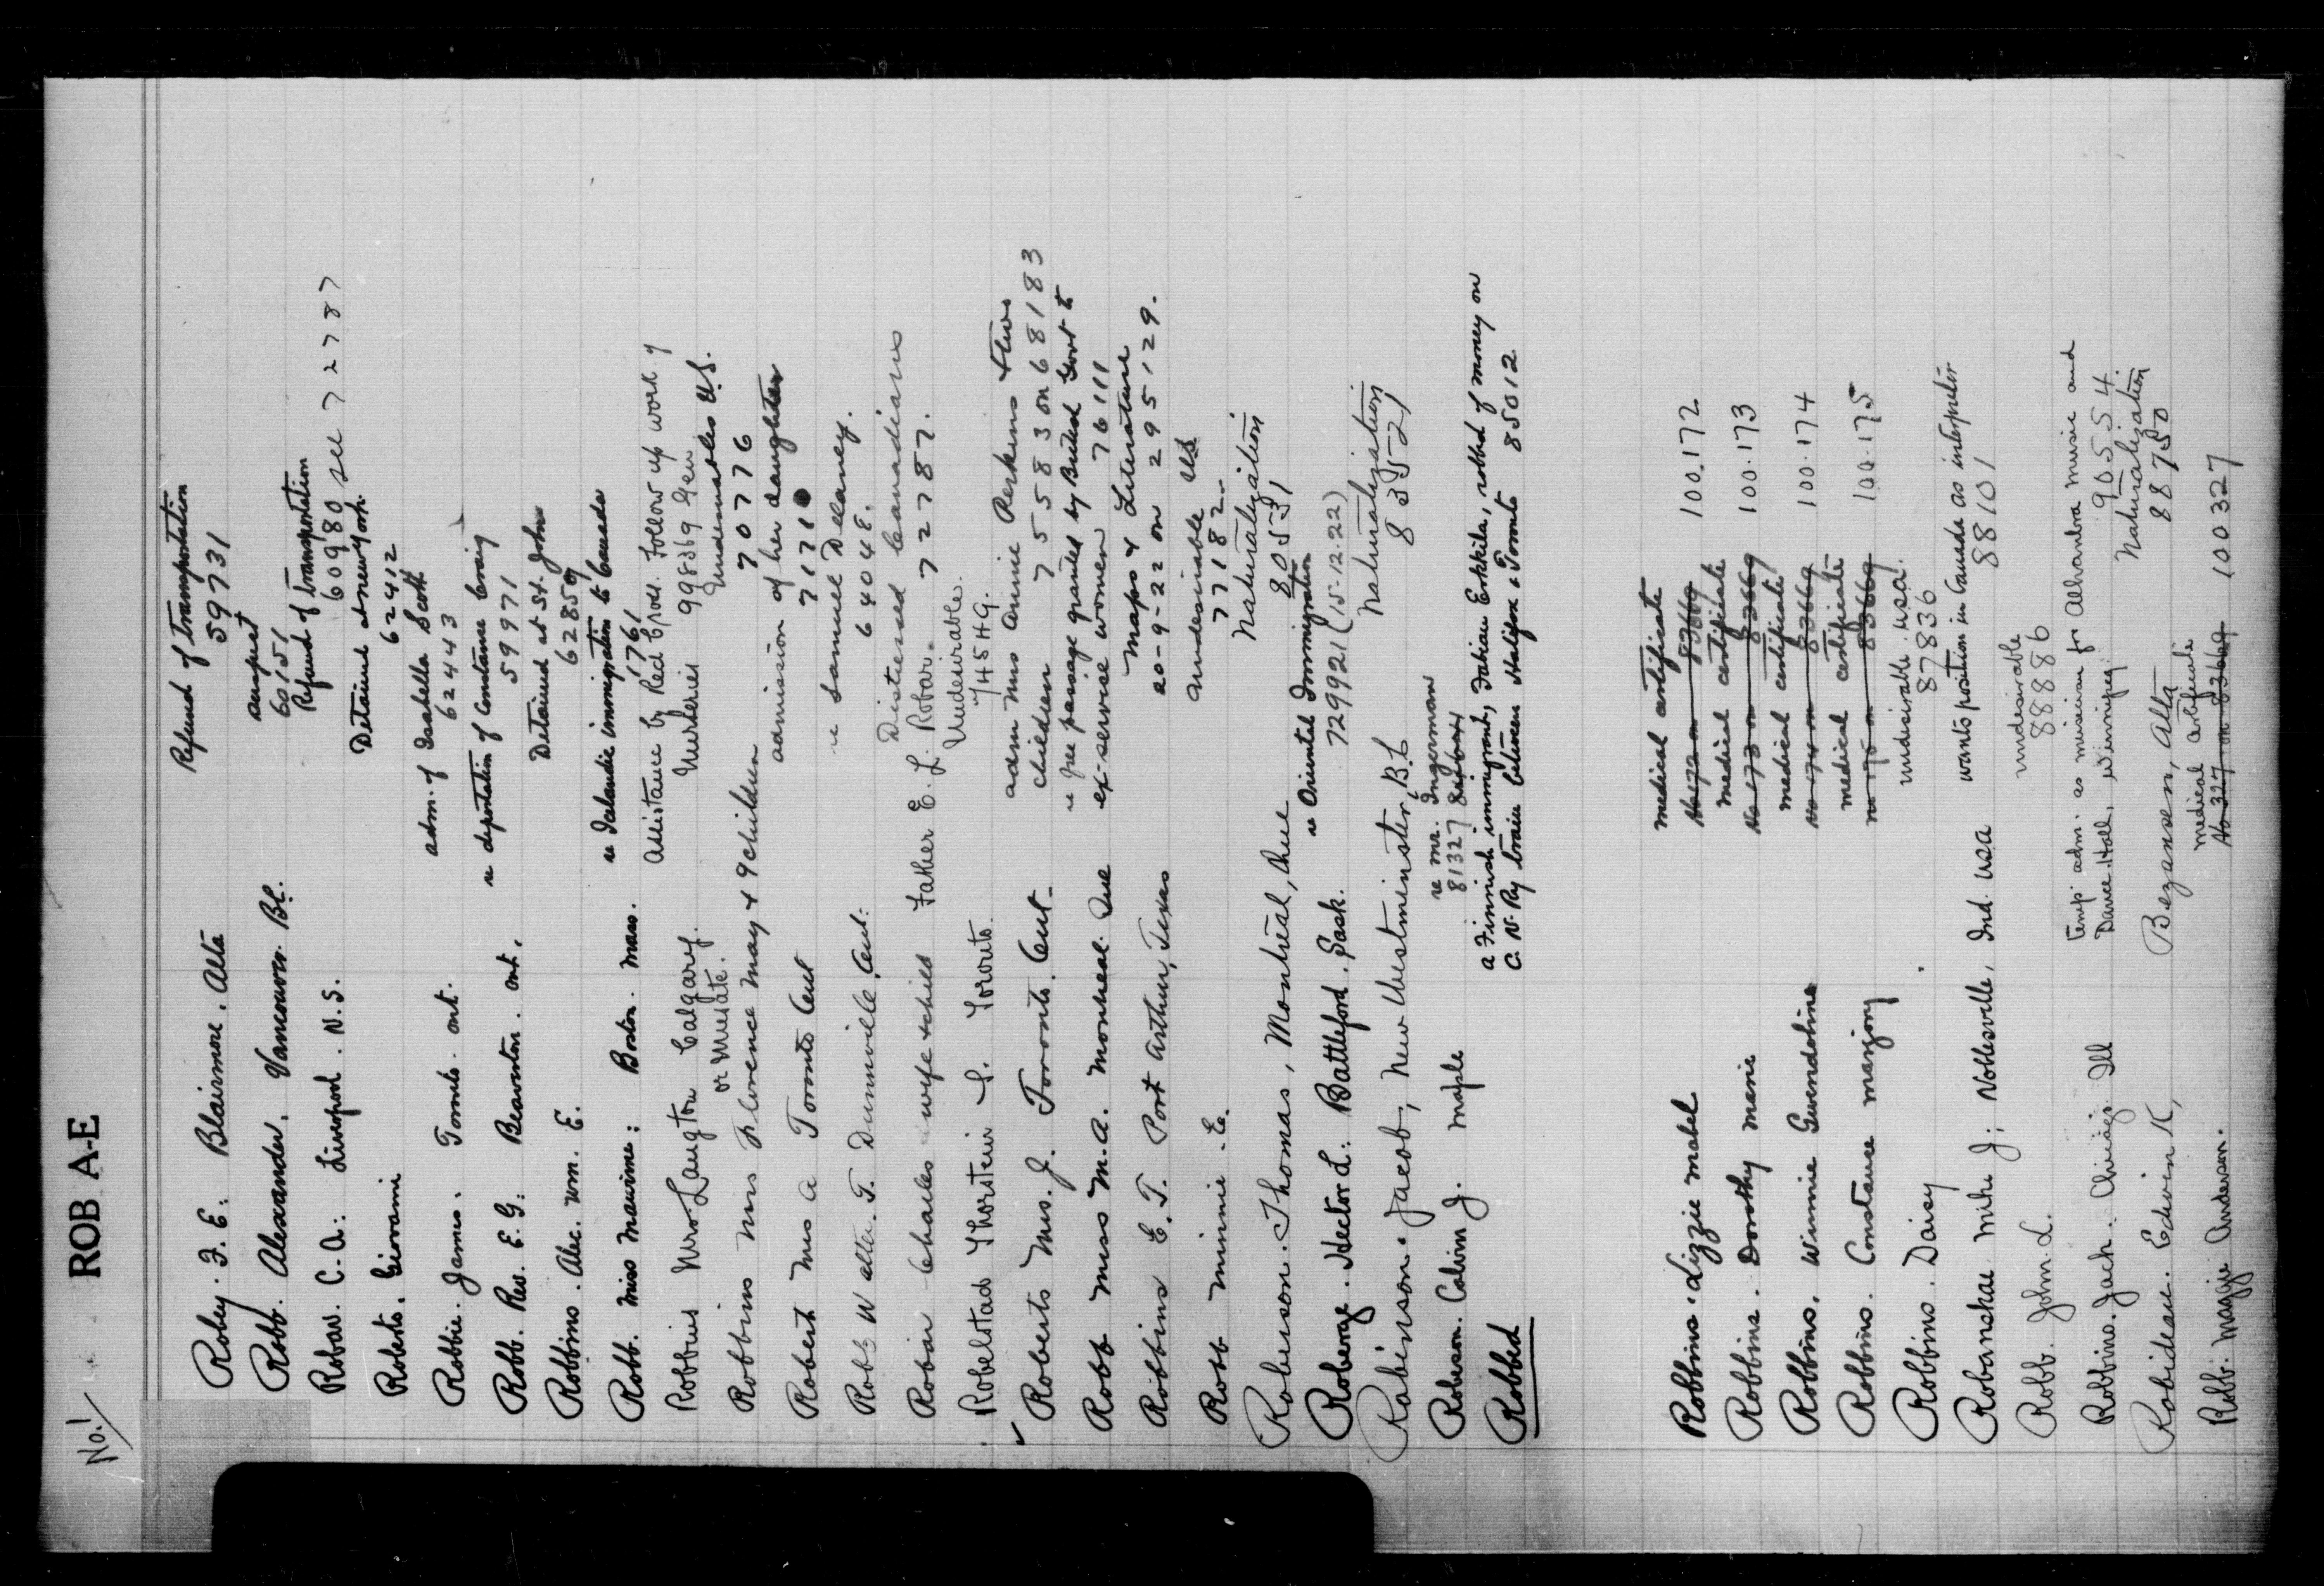 No. 1
ROB A-E
Roby. F. E. Blairmore, Alta Refund of transportation
59731
Robb. Alexander. Vancouver B.C.
60151
Refund of transportation
Robar. C. A. Liverpool. N.S. 60980 see 72787
Roberto. Giovanni Detained at New York.
62412
Robbie. James. Toronto. Ont. adm. of Isabella Scott
62443
Robb. Rev. E. G. Beaverton. Ont. re deportation of Constance Craig
59971
Robbins. Alec. Wm. E. Detained at St. John
62859
Robb. Miss Maurine: Boston. Mass. re Icelandic immigration to Canada
Robbins Mrs Langton Calgary. Assistance by Red Cross. Follow up work of
or Musate. 998369 Gen
Undesirables U.S.
Robbins Mrs Florence May & 9 children 70776
Robert Mrs A Toronto Ont admission of her daughter
7171
Robb Walter. T. Dunnville, Ont: re Samuel Delaney.
64048.
Robar Charles wife & child Father E. L. Robar. Distressed Canadians
72787.
Robelstad Thorstein S. Toronto. Undesirable.
74549.
Roberts Mrs. J. Toronto. Ont. adm Mrs Annie Perkins & two
children 75583 on 68183
Robb Miss M. A. Montreal. Que re free passage granted by British Govt to
ex-service women 76111
Robbins E. T. Port Arthur, Texas Maps & Literature
20-9-22 on 295129.
Robb Minnie. E. Undesirable US
77182.
Roberson. Thomas, Montreal, Que Naturalization
80531
Roberge. Hector L. Battleford. Sask. re Oriental Immigration
729921 (15-12-22)
Robinson. Jacob, New Westminster, B.C. Naturalization
83521
Roberson. Calvin J. Maple re Mr. Ingerman
81327
Robbed a Finnish immigrant, Fabian Erkkila, robbed of money on
C. N. Ry train between Halifax & Toronto 85012
Robbins. Lizzie Mabel medical certificate 100.172
No 172 on 83669
Robbins. Dorothy Marie medical certificate 100.173
No 173 on 83669
Robbins. Winnie Gwendoline medical certificate 100.174
No 174 on 83669
Robbins. Constance Marjory medical certificate 100.175
no 175 on 83669
Robbins. Daisy undesirable. USA.
87836
Robanskae Mike J; Noblesville, Ind. USA wants position in Canada as interpreter
88101
Robb. John. L. undesirable
88886
Robbins. Jack. Chicago Ill temp adm. as musician for Alhambra Music and
Dance Hall, Winnipeg. 90554.
Robideau. Edwin K, Bezanson, Alta Naturalization
88750
Robb. Maggie Anderson. medical certificate
No 327 on 83669 100327